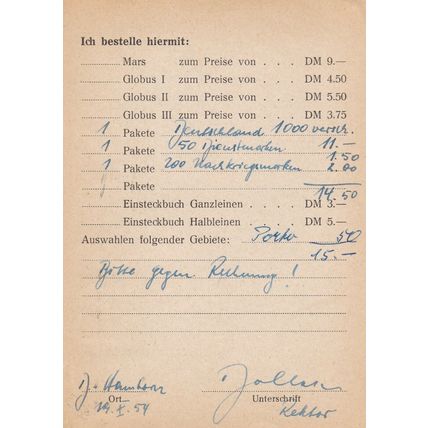 Ich bestelle hiermit:
Mars zum Preise von . . . DM 9.—
Globus I zum Preise von . . . DM 4.50
Globus II zum Preise von . . . DM 5.50
Globus III zum Preise von . . . DM 3.75
1 Pakete Deutschland 1000 versch. 11.—
1 Pakete 50 Dienstmarken 1.50
1 Pakete 200 Nachkriegsmarken 2.00
Pakete 14.50
Einsteckbuch Ganzleinen . . . DM 3.—
Einsteckbuch Halbleinen . . . DM 5.—
Auswahlen folgender Gebiete: Porto 50
15.—
Bitte gegen Rechnung!
Hamborn
Ort Unterschrift
19. X. 54 Rektor